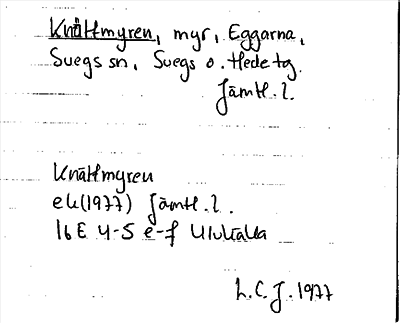 Knättmyren, myr, Eggarna,
Svegs sn, Svegs o. Hede tg.
Jämtl. l.
Knättmyren
ek (1977) Jämtl. l.
16 E 4-5 e-f Ulvkälla
L. C. J. 1977